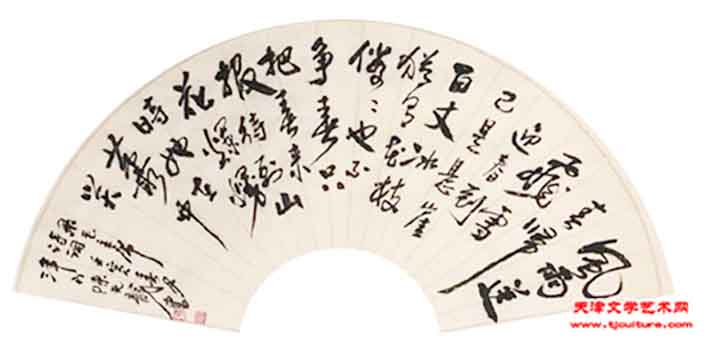 風雨送
春歸
飛雪
迎春到
已是懸崖
百丈冰
猶有花枝
俏俏也不
争春只
把春来
報待到山
花爛漫
時她在
叢中
笑
毛主席
天津文学艺术网
www.tjculture.com